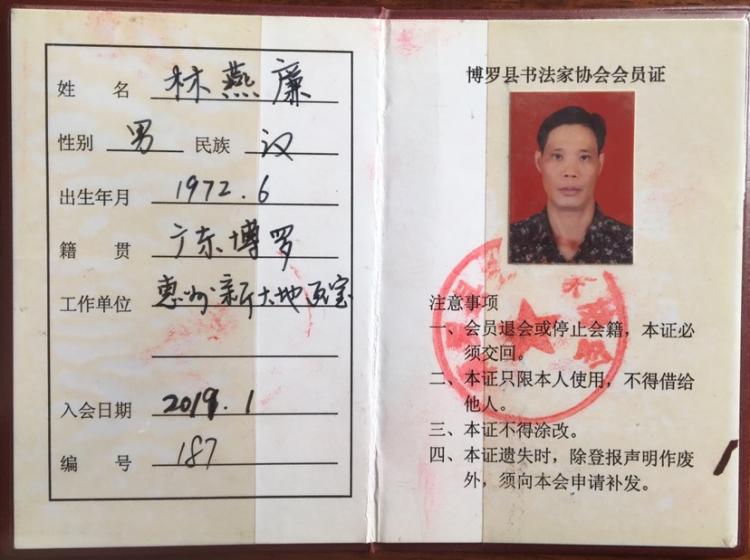 姓 名 林燕廉
性别 男 民族 汉
出生年月 1972.6
籍贯 广东博罗
工作单位 惠州新大地画室
入会日期 2019.1
编号 187
博罗县书法家协会会员证
注意事项
一、会员退会或停止会籍，本证必
须交回。
二、本证只限本人使用，不得借给
他人。
三、本证不得涂改。
四、本证遗失时，除登报声明作废
外，须向本会申请补发。